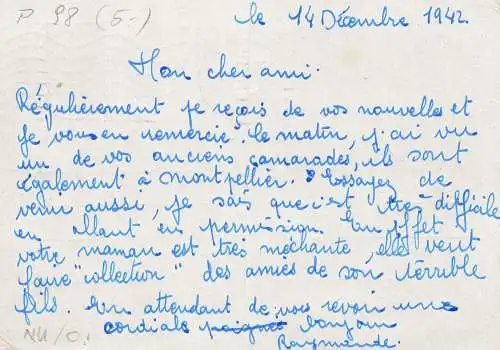 P 98 (5-)
le 14 Décembre 1942.
Mon cher ami.
Régulièrement je reçois de vos nouvelles et
je vous en remercie. Ce matin, j'ai vu
un de vos anciens camarades, ils sont
également à montpellier. Essayez de
venir aussi, je sais que c'est très difficile
en allant en permission. En effet
votre maman est très méchante, elle veut
faire "collection" des amies de son terrible
fils. En attendant de vous revoir une
cordiale poignet bonjour
Raymonde.